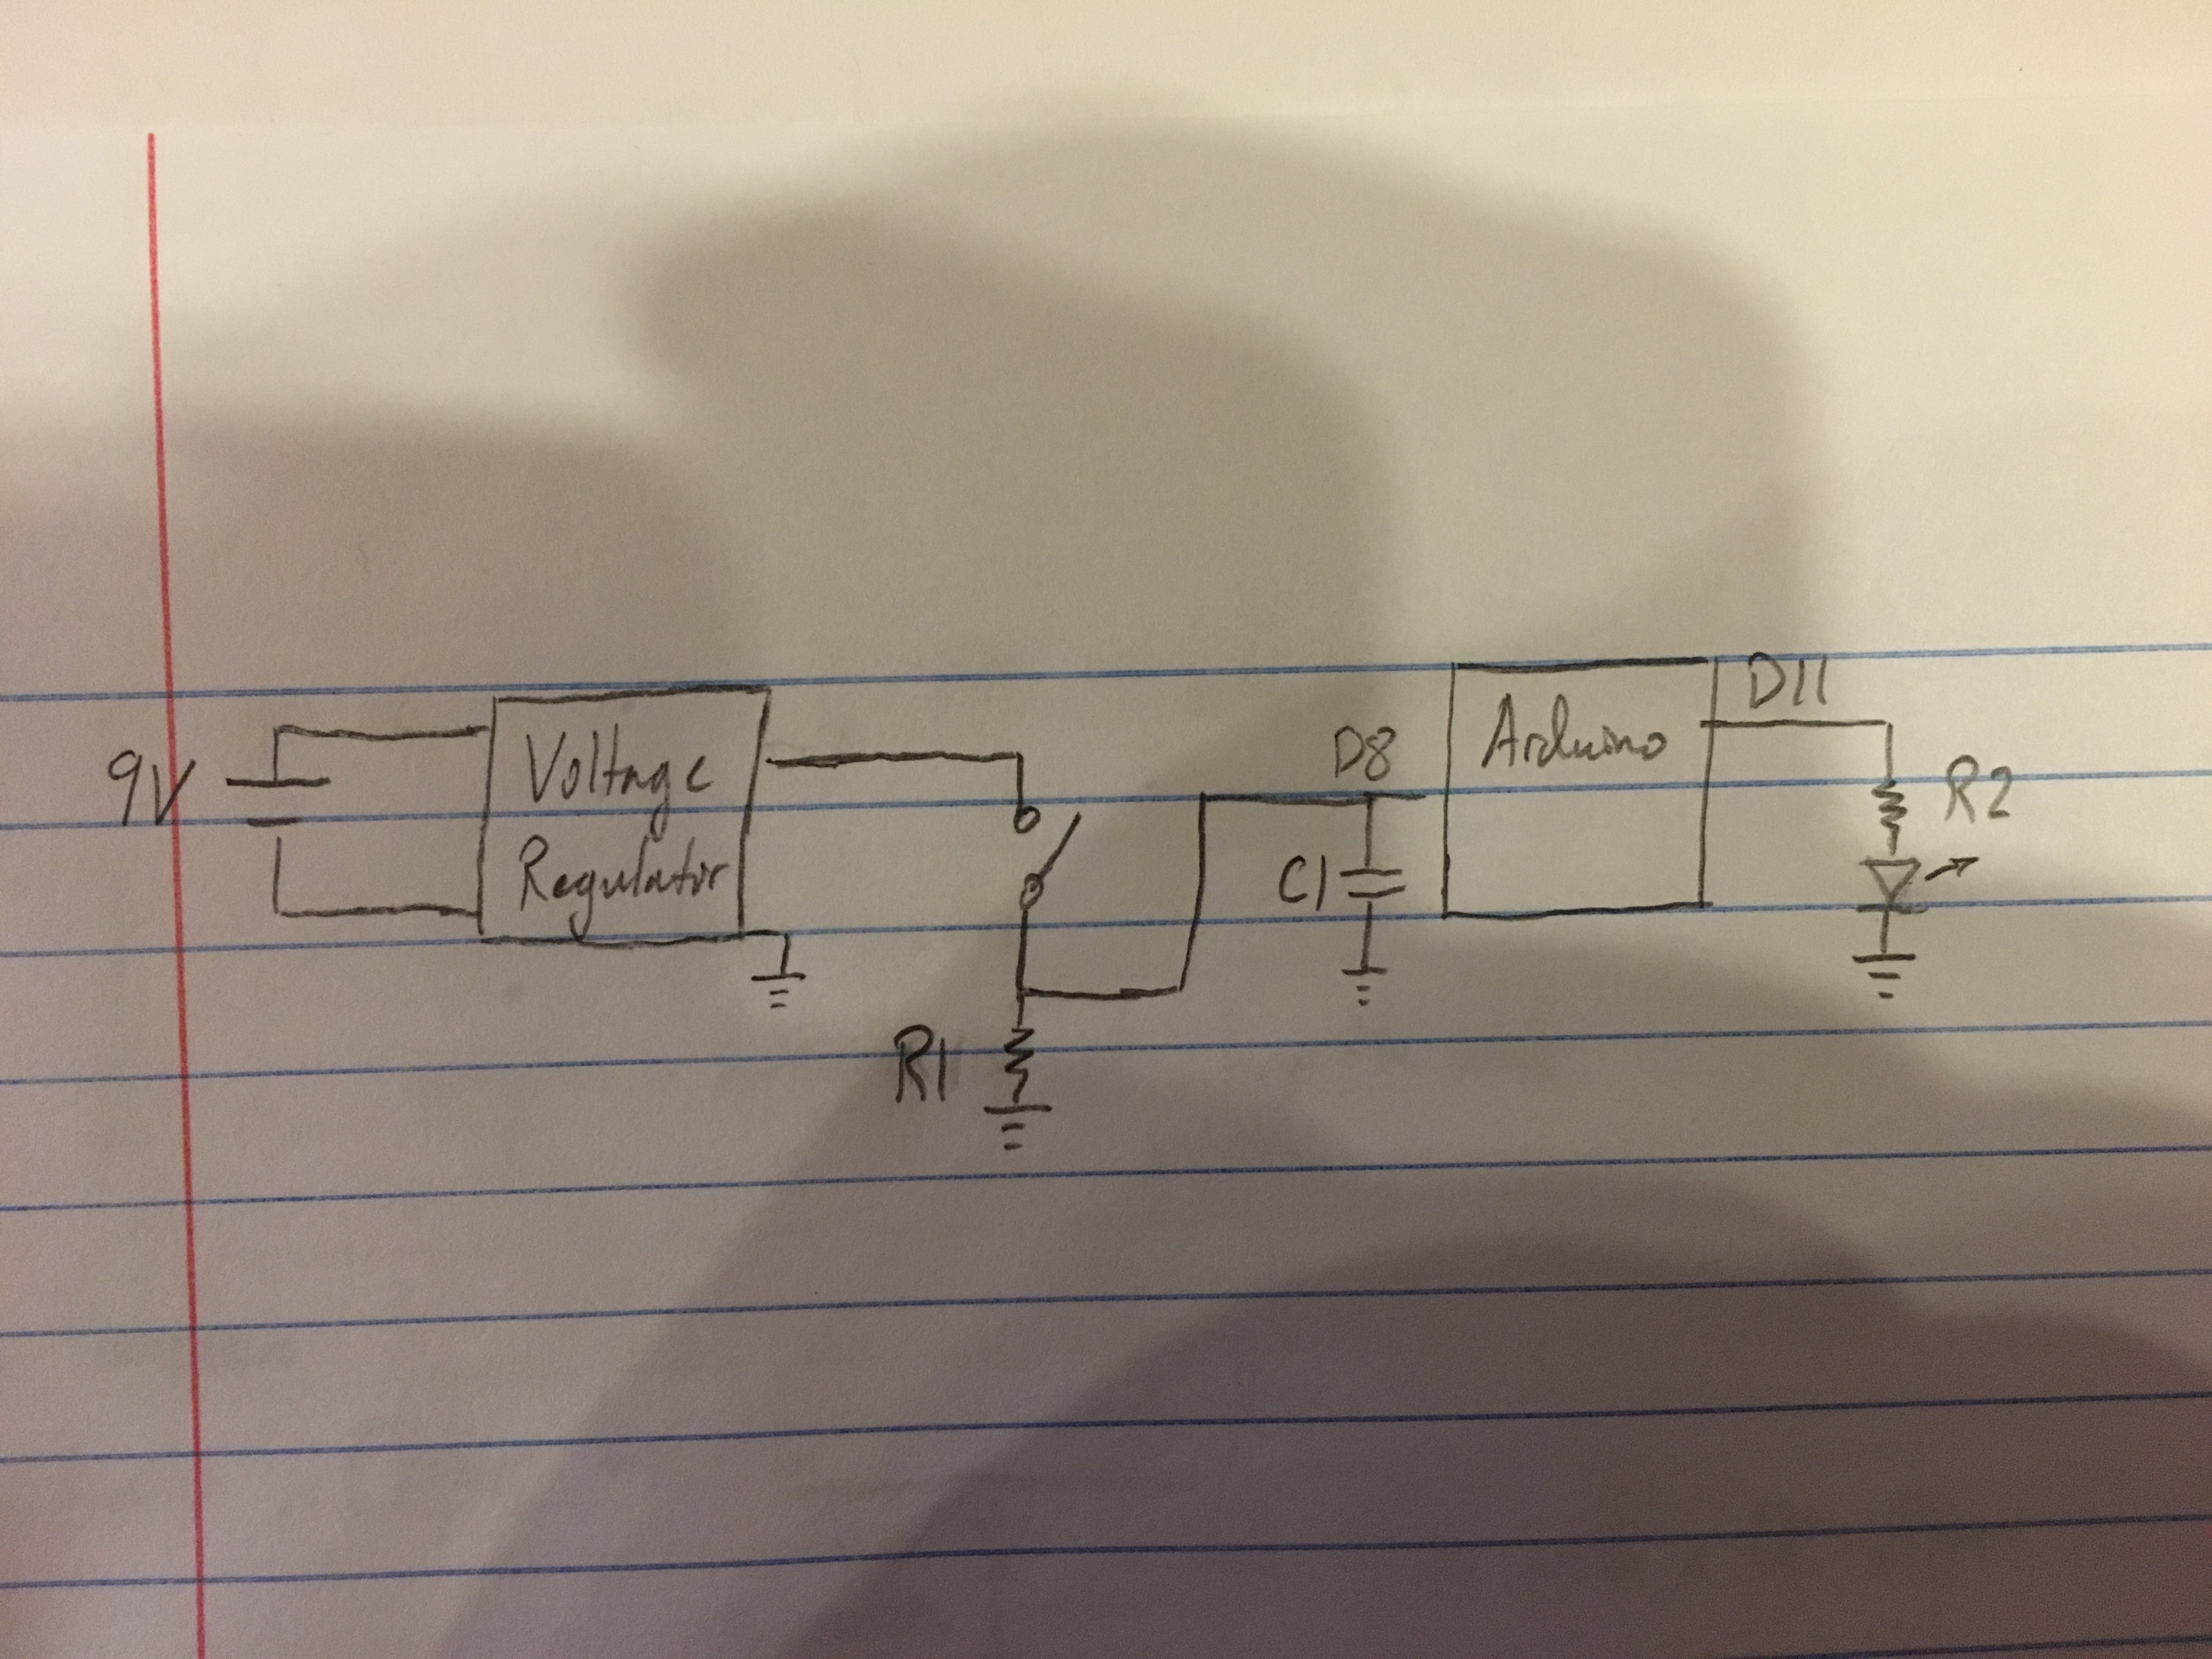 9V
Voltage
Regulator
R1
C1
D8
Arduino
D11
R2